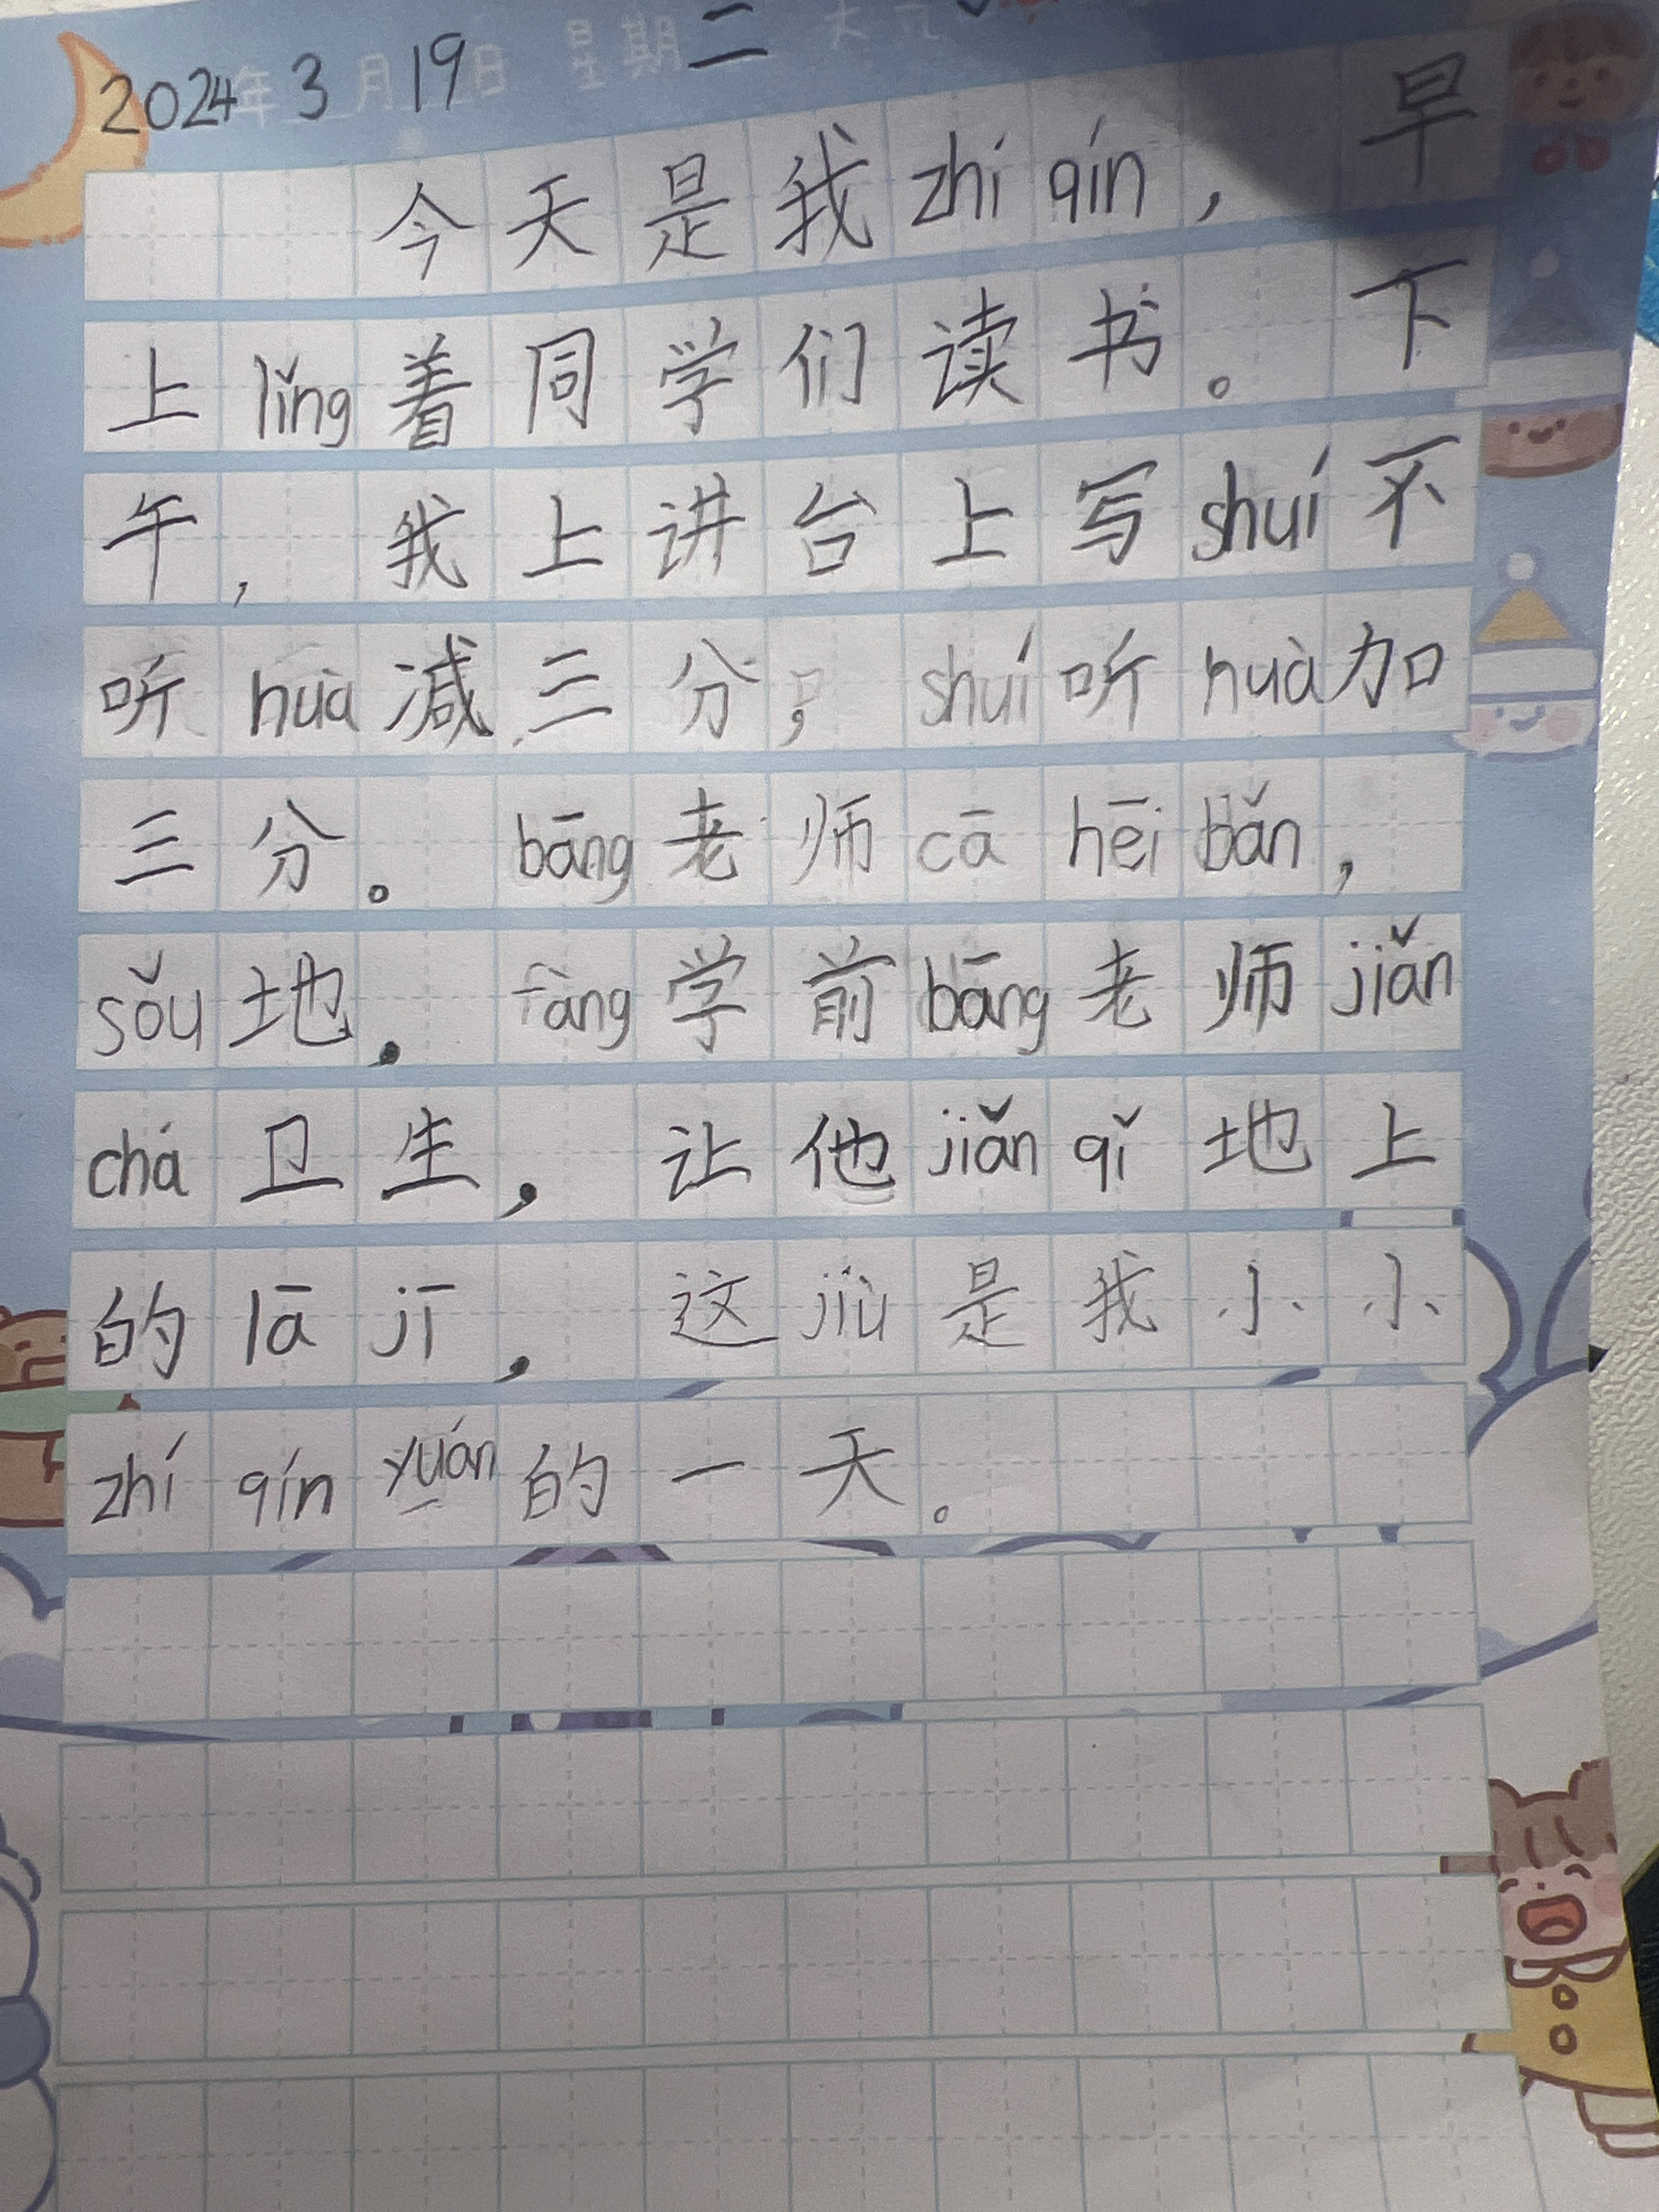 2024年3月19日 星期二 天气
今天是我zhí qín，早
上lǐng着同学们读书。下
午，我上讲台上写shuí不
听huà减三分，shuí听huà加
三分。bāng老师cā hēi bǎn，
sǒu地。fàng学前bāng老师jiǎn
chá卫生，让他jiǎn qǐ地上
的lā jī，这jiù是我小小
zhí qín yuán的一天。